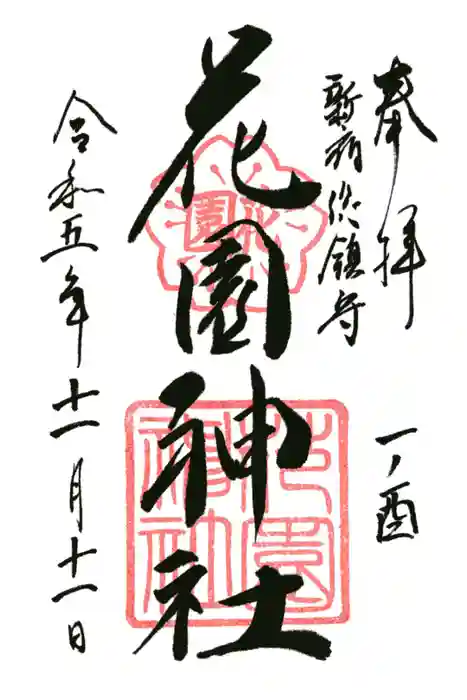 奉拝
一ノ酉
新宿総鎮守
花園神社
花園
花園神社
令和五年十一月十一日